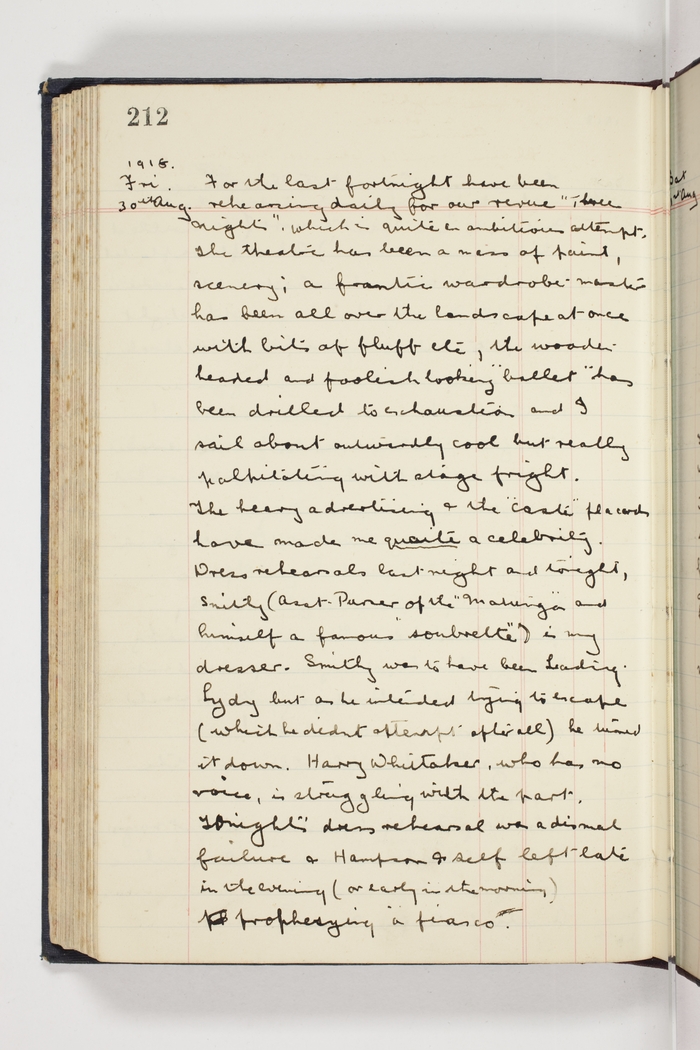 212
1918.
Fri. For the last fortnight have been
30th Aug. rehearsing daily for our revue "Three
Nights", which is quite an ambitious attempt.
The theatre has been a mess of paint,
scenery; a frantic wardrobe-master
has been all over the landscape at once
with bits of fluff etc, the wooden-
headed and foolish looking "ballet" has
been drilled to exhaustion and I
sail about outwardly cool but really
palpitating with stage fright.
The heavy advertising & the "caste" placards
have made me quaite a celebrity.
Dress rehearsals last night and tonight,
Smitty (Asst. Purser of the "Matunga" and
himself a famous "soubrette") is my
dresser. Smithy was to have been Leading-
Lydy but as he intended trying to escape
(which he didnt attempt after all) he turned
it down. Harry Whittaker, who has no
voice, is struggling with the part.
Tonight's dress rehearsal was a dismal
failure & Hampson & self left late
in the evening (or early in the morning)
prophesying "a fiasco".
Sat
Aug